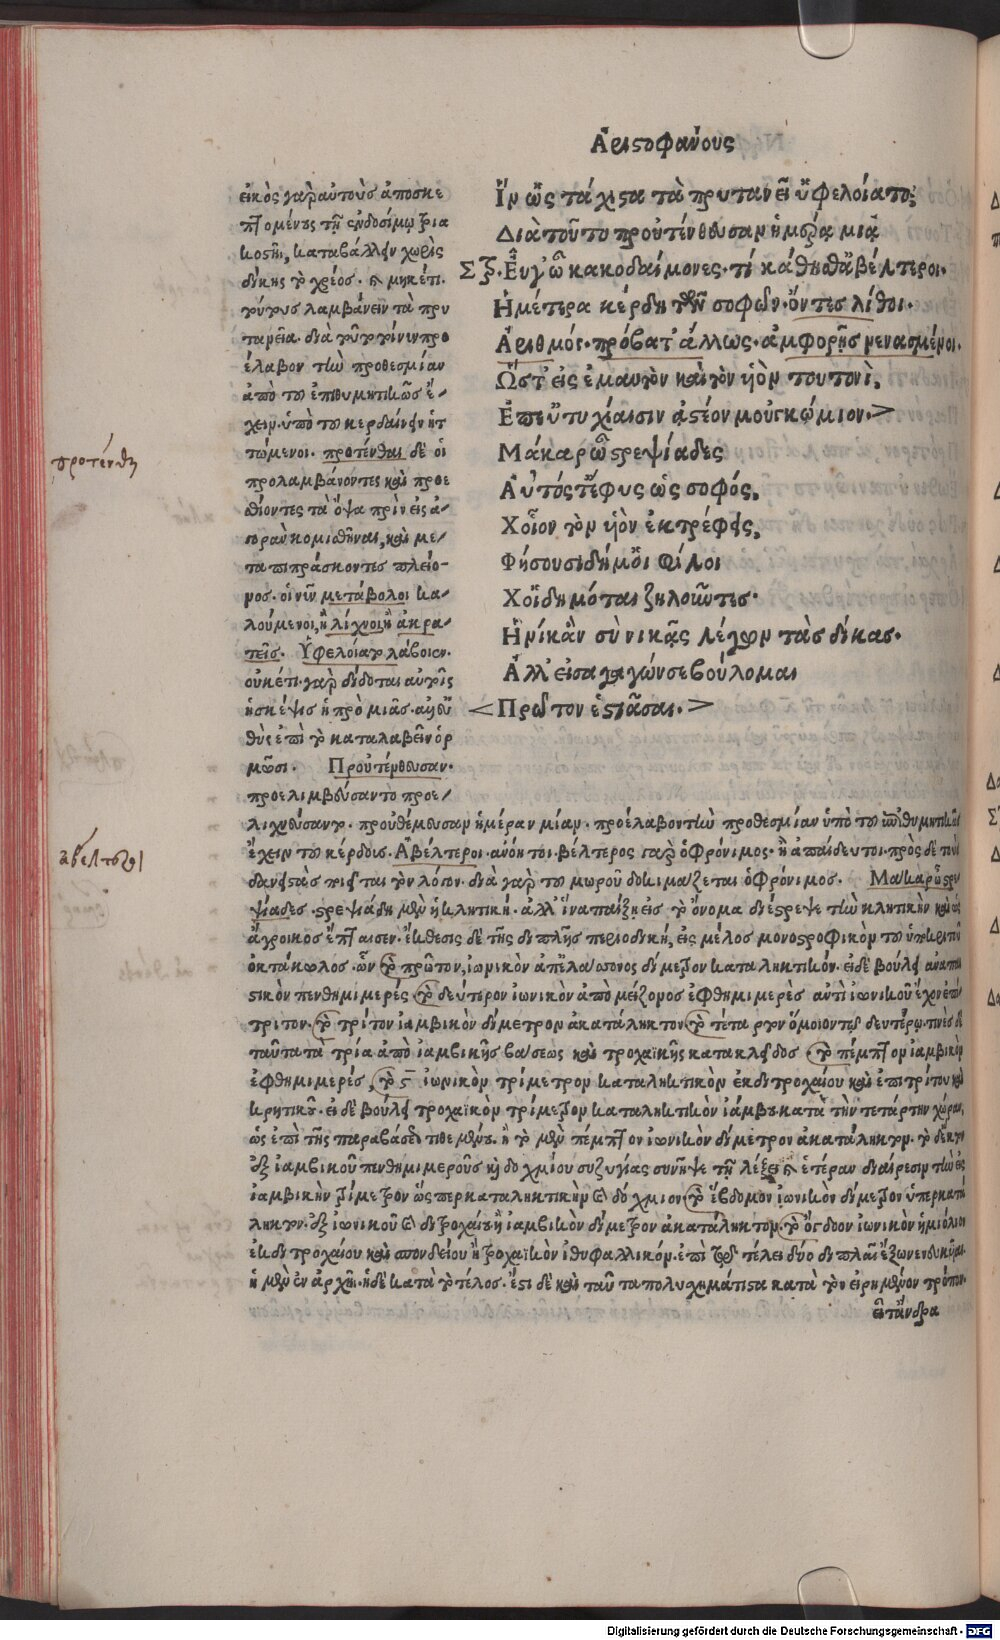 Ἀριστοφάνους
Ἵν ὡς τάχιστα τὰ πρυτανεῖ ὑφελοίατο;
Διὰ τοῦτο προὐτένθευσαν ἡμέρᾳ μιᾷ
Στρ. Εὖγ' ὦ κακοδαίμονες. τί κάθησθ' ἀβέλτεροι.
Ἡμέτερα κέρδη τῶν σοφῶν. ὄντες λίθοι.
Ἀριθμός. πρόβατ' ἄλλως. ἀμφορῆς νενασμένοι.
Ὥστ' εἰς ἐμαυτὸν καὶ τὸν υἱὸν τουτονὶ,
Ἐπ' εὐτυχίαισιν ᾀστέον μοὐγκώμιον.
Μάκαρ ὦ στρεψίαδες
Αὐτός τ' ἔφυς ὡς σοφός,
Χοἷον τὸν υἱὸν ἐκτρέφεις,
Φήσουσι δή μ' οἱ φίλοι
Χοἱ δημόται ζηλοῦντες.
Ἡνίκ' ἂν σὺ νικᾷς λέγων τὰς δίκας.
Ἀλλ' εἰσάγων σε βούλομαι
Πρῶτον ἑστιᾶσαι.
εἰκὸς γὰρ αὐτοὺς ἀποσκε
πτομένους τῇ ἐνδοσίμῳ τρια
κοστῇ, καταβάλλειν χωρὶς
δίκης τὸ χρέος. καὶ μηκέτι
τούτους λαμβάνειν τὰ πρυ
τανεῖα. διὰ τοῦτο
ἔλαβον τὴν προθεσμίαν
ἀπὸ τοῦ ἐπιθυμητικῶς ἔ-
χειν. ὑπὸ τοῦ κερδαίνειν ἡτ
τώμενοι. προτένθαι δὲ οἱ
προλαμβάνοντες καὶ προε
σθίοντες τὰ ὄψα πρὶν εἰς ἀ-
γορὰν κομισθῆναι, καὶ με-
ταπιπράσκοντες πλείο-
νος. οἱ νῦν μετάβολοι κα-
λούμενοι, ἢ λίχνοι, ἢ ἀκρα-
τεῖς. Ὑφελοίατο λάβοιεν.
οὐκέτι γὰρ δίδοται αὐτοῖς
ἡ σκέψις ἡ πρὸ μιᾶς. ἀλλ' εὐ
θὺς ἐπὶ τὸ καταλαβεῖν ὁρ
μῶσι. Προὐτένθευσαν.
προελιμβεύσαντο προε-
λιχνεύσαντο. προὐθέμευσαν ἡμέραν μίαν. προέλαβον τὴν προθεσμίαν ὑπὸ τοῦ ἐπιθυμητικῶς
ἔχειν τοῦ κέρδους. Ἀβέλτεροι. ἀνόητοι. βέλτερος γὰρ ὁ φρόνιμος. ἢ ἀπαίδευτοι. πρὸς δὲ τοὺς
δανειστὰς τρέπεται τὸν λόγον. διὰ γὰρ τοῦ μωροῦ δοκιμάζεται ὁ φρόνιμος. Μάκαρ ὦ στρε
ψίαδες. στρεψιάδη μὲν ἡ κλητική. ἀλλ' ἵνα παίξῃ εἰς τὸ ὄνομα διέστρεψε τὴν κλητικὴν καὶ ὡς
ἄγροικος ἔπταισεν. ἔκθεσις δὲ τῆς διπλῆς περιοδική, εἰς μέλος μονοστροφικὸν τοῦ ὑποκριτοῦ
ὀκτάκωλος. ὧν τὸ πρῶτον, ἰωνικὸν ἀπ' ἐλάσσονος δίμετρον καταληκτικόν. εἰ δὲ βούλει ἀναπαι
στικὸν πενθημιμερές. τὸ δεύτερον ἰωνικὸν ἀπὸ μείζονος ἐφθημιμερὲς ἀντὶ ἰωνικοῦ ἔχον ἐπί-
τριτον. τὸ τρίτον ἰαμβικὸν δίμετρον ἀκατάληκτον. τὸ τέταρτον ὅμοιον τῷ δευτέρῳ. τινὲς δὲ
ταῦτα τὰ τρία ἀπὸ ἰαμβικῆς βάσεως καὶ τροχαϊκῆς κατακλεῖδος. τὸ πέμπτον ἰαμβικὸν
ἐφθημιμερές. τὸ ϛ ἰωνικὸν τρίμετρον καταληκτικὸν ἐκ διτροχαίου καὶ ἐπιτρίτου καὶ
κρητικοῦ. εἰ δὲ βούλει τροχαϊκὸν τρίμετρον καταληκτικὸν ἰάμβου κατὰ τὴν τετάρτην χώραν,
ὡς ἐπὶ τῆς παραβάσεως τιθεμένου. ἢ τὸ μὲν πέμπτον ἰωνικὸν δίμετρον ἀκατάληκτον. τὸ δὲ ἕκτον
ἐξ ἰαμβικοῦ πενθημιμεροῦς καὶ δοχμίου συζυγίας συνῆψε τῇ λέξει καὶ ἑτέραν διαίρεσιν τὴν εἰς
ἰαμβικὴν τρίμετρον ὥσπερ καταληκτικὴν καὶ δόχμιον. τὸ ἕβδομον ἰωνικὸν δίμετρον ὑπερκατά
ληκτον. ἐξ ἰωνικοῦ καὶ διτροχαίου ἢ ἰαμβικὸν δίμετρον ἀκατάληκτον. τὸ ὄγδοον ἰωνικὸν ἡμιόλιον
ἐκ διτροχαίου καὶ σπονδείου ἢ τροχαϊκὸν ἰθυφαλλικόν. ἐπὶ τῷ τέλει δύο διπλαῖ ἔξω νενευκυῖαι.
ἡ μὲν ἐν ἀρχῇ. ἡ δὲ κατὰ τὸ τέλος. ἔστι δὲ καὶ ταῦτα πολυσχημάτιστα κατὰ τὸν εἰρημένον τρόπον.
εἶτ' ἄνδρα
προτένθη
ἀβελτεροι
Digitalisierung gefördert durch die Deutsche Forschungsgemeinschaft - DFG